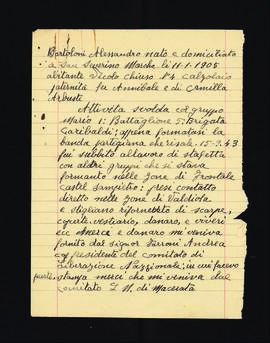 Bartoloni Alessandro nato e domiciliato
a San Severino Marche li 11-1-1905
abitante Vicolo chiuso N.4 calzolaio
paternità fu Annibale e di Camella
Arbuste
Attevita svolda col gruppo
Mario 1: Battaglione 5: Brigata
Garibaldi; appena formatasi la
banda partigiana che risale 15-9-43
fui subbito all lavoro di staffetta
con altri gruppi che si stava
formanto nelle zone di Frontale
Castel Sampietro; presi contatto
diretto nelle zone di Valdiola
e Stigliano rifornebito di scarpe,
coperte, vestiario, danaro, e viveri
ecc Merce e danaro mi veniva
fornito dal signor Farroni Andrea
ex presidente del comitato di
Liberazione Nazzionale; in cui facevo
parte, stanza merci che mi veniva dal
comitato L. N. di Macerata